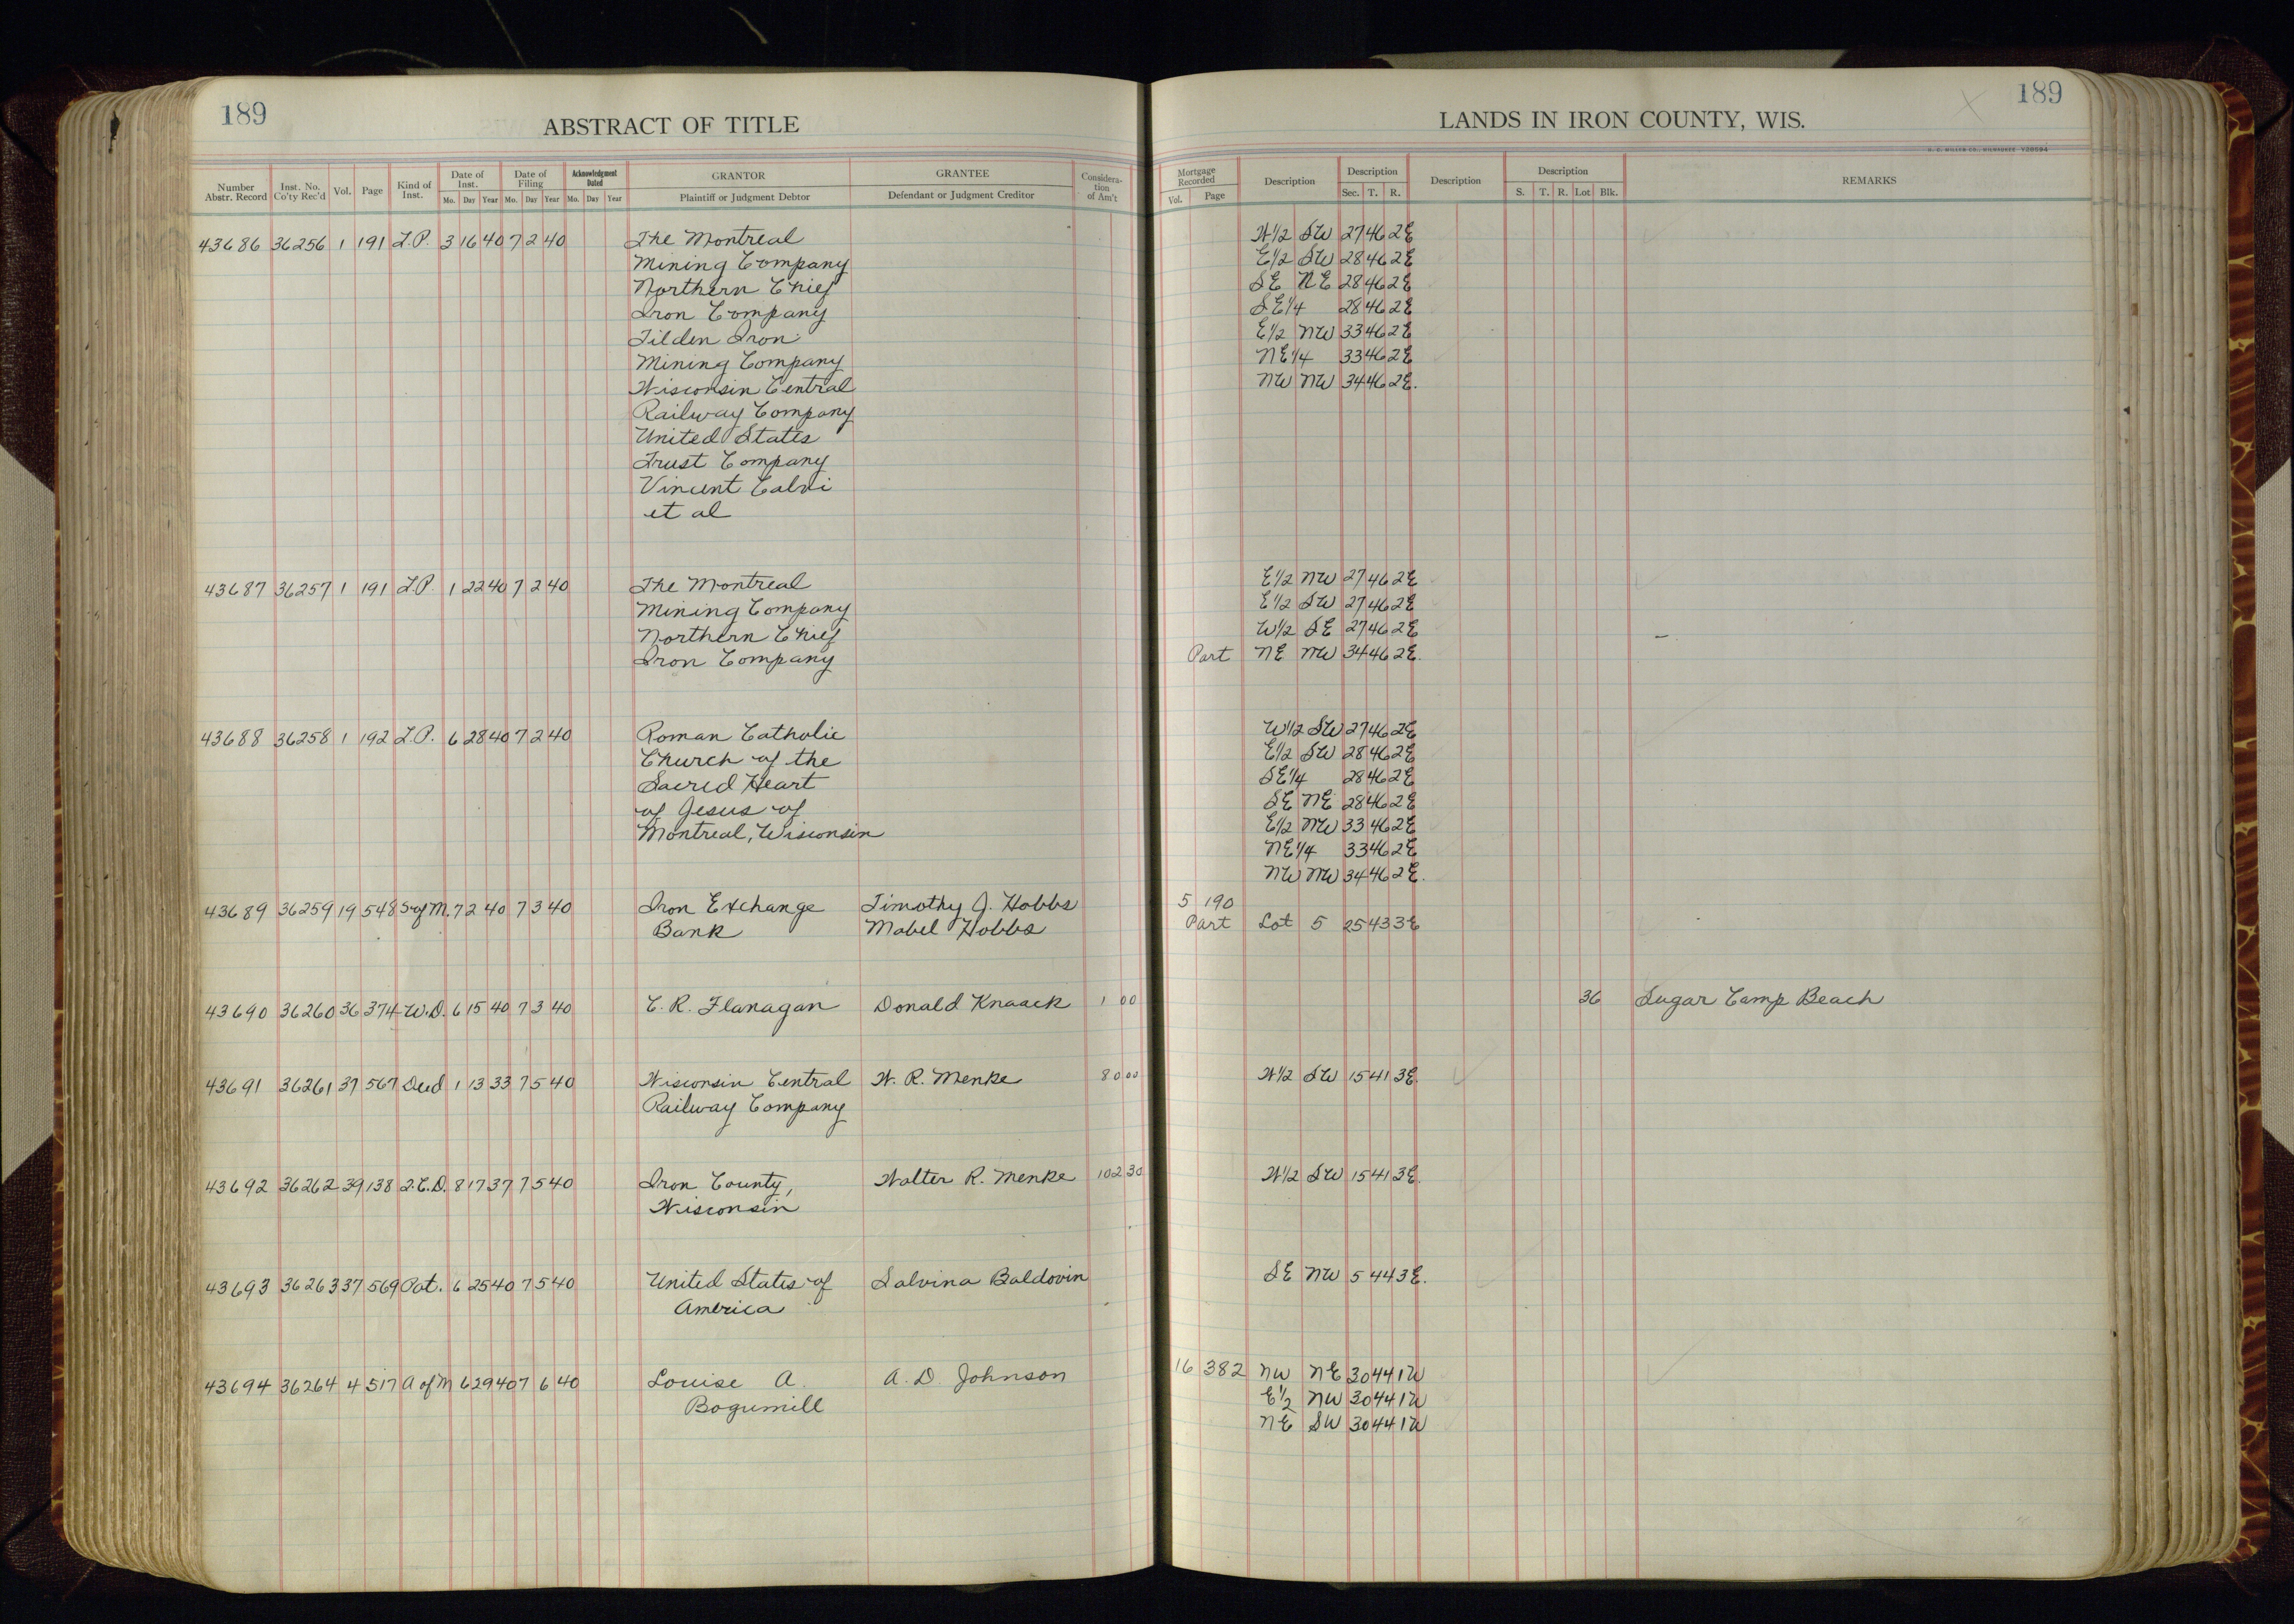 189
ABSTRACT OF TITLE
Number Abstr. Record Inst. No. Co'ty Rec'd Vol. Page Kind of Inst. Date of Inst. Mo. Day Year Date of Filing Mo. Day Year Acknowledgment Dated Mo. Day Year GRANTOR Plaintiff or Judgment Debtor GRANTEE Defendant or Judgment Creditor Consideration of Am't
43686 36256 1 191 L.P. 3 16 40 7 2 40 The Montreal
Mining Company
Northern Chief
Iron Company
Tilden Iron
Mining Company
Wisconsin Central
Railway Company
United States
Trust Company
Vincent Calvi
et al
43687 36257 1 191 L.P. 1 22 40 7 2 40 The Montreal
Mining Company
Northern Chief
Iron Company
43688 36258 1 192 L.P. 6 28 40 7 2 40 Roman Catholic
Church of the
Sacred Heart
of Jesus of
Montreal, Wisconsin
43689 36259 19 548 S of M. 7 2 40 7 3 40 Iron Exchange Timothy J. Hobbs
Bank Mabel Hobbs
43690 36260 36 374 W.D. 6 15 40 7 3 40 C. R. Flanagan Donald Knaack 1 00
43691 36261 37 567 Deed 1 13 33 7 5 40 Wisconsin Central W. R. Menke 80 00
Railway Company
43692 36262 39 138 Q.C.D. 8 17 37 7 5 40 Iron County, Walter R. Menke 102 30
Wisconsin
43693 36263 37 569 Pat. 6 25 40 7 5 40 United States of Salvina Baldovin
America
43694 36264 4 517 A of M 6 29 40 7 6 40 Louise A. A. D. Johnson
Bogumill
189
LANDS IN IRON COUNTY, WIS.
H. C. MILLER CO., MILWAUKEE
Mortgage Recorded Vol. Page Description Description Sec. T. R. Description Description S. T. R. Lot Blk. REMARKS
W1/2 SW 27 46 2E
E1/2 SW 28 46 2E
SE NE 28 46 2E
SE1/4 28 46 2E
E1/2 NW 33 46 2E
NE1/4 33 46 2E
NW NW 34 46 2E.
E1/2 NW 27 46 2E
E1/2 SW 27 46 2E
W1/2 SE 27 46 2E
Part NE NW 34 46 2E.
W1/2 SW 27 46 2E
E1/2 SW 28 46 2E
SE1/4 28 46 2E
SE NE 28 46 2E
E1/2 NW 33 46 2E
NE1/4 33 46 2E
NW NW 34 46 2E.
5 190
Part Lot 5 25 43 3E
36 Sugar Camp Beach
W1/2 SW 15 41 3E.
W1/2 SW 15 41 3E.
SE NW 5 44 3E.
16 382 NW NE 30 44 1W
E1/2 NW 30 44 1W
NE SW 30 44 1W